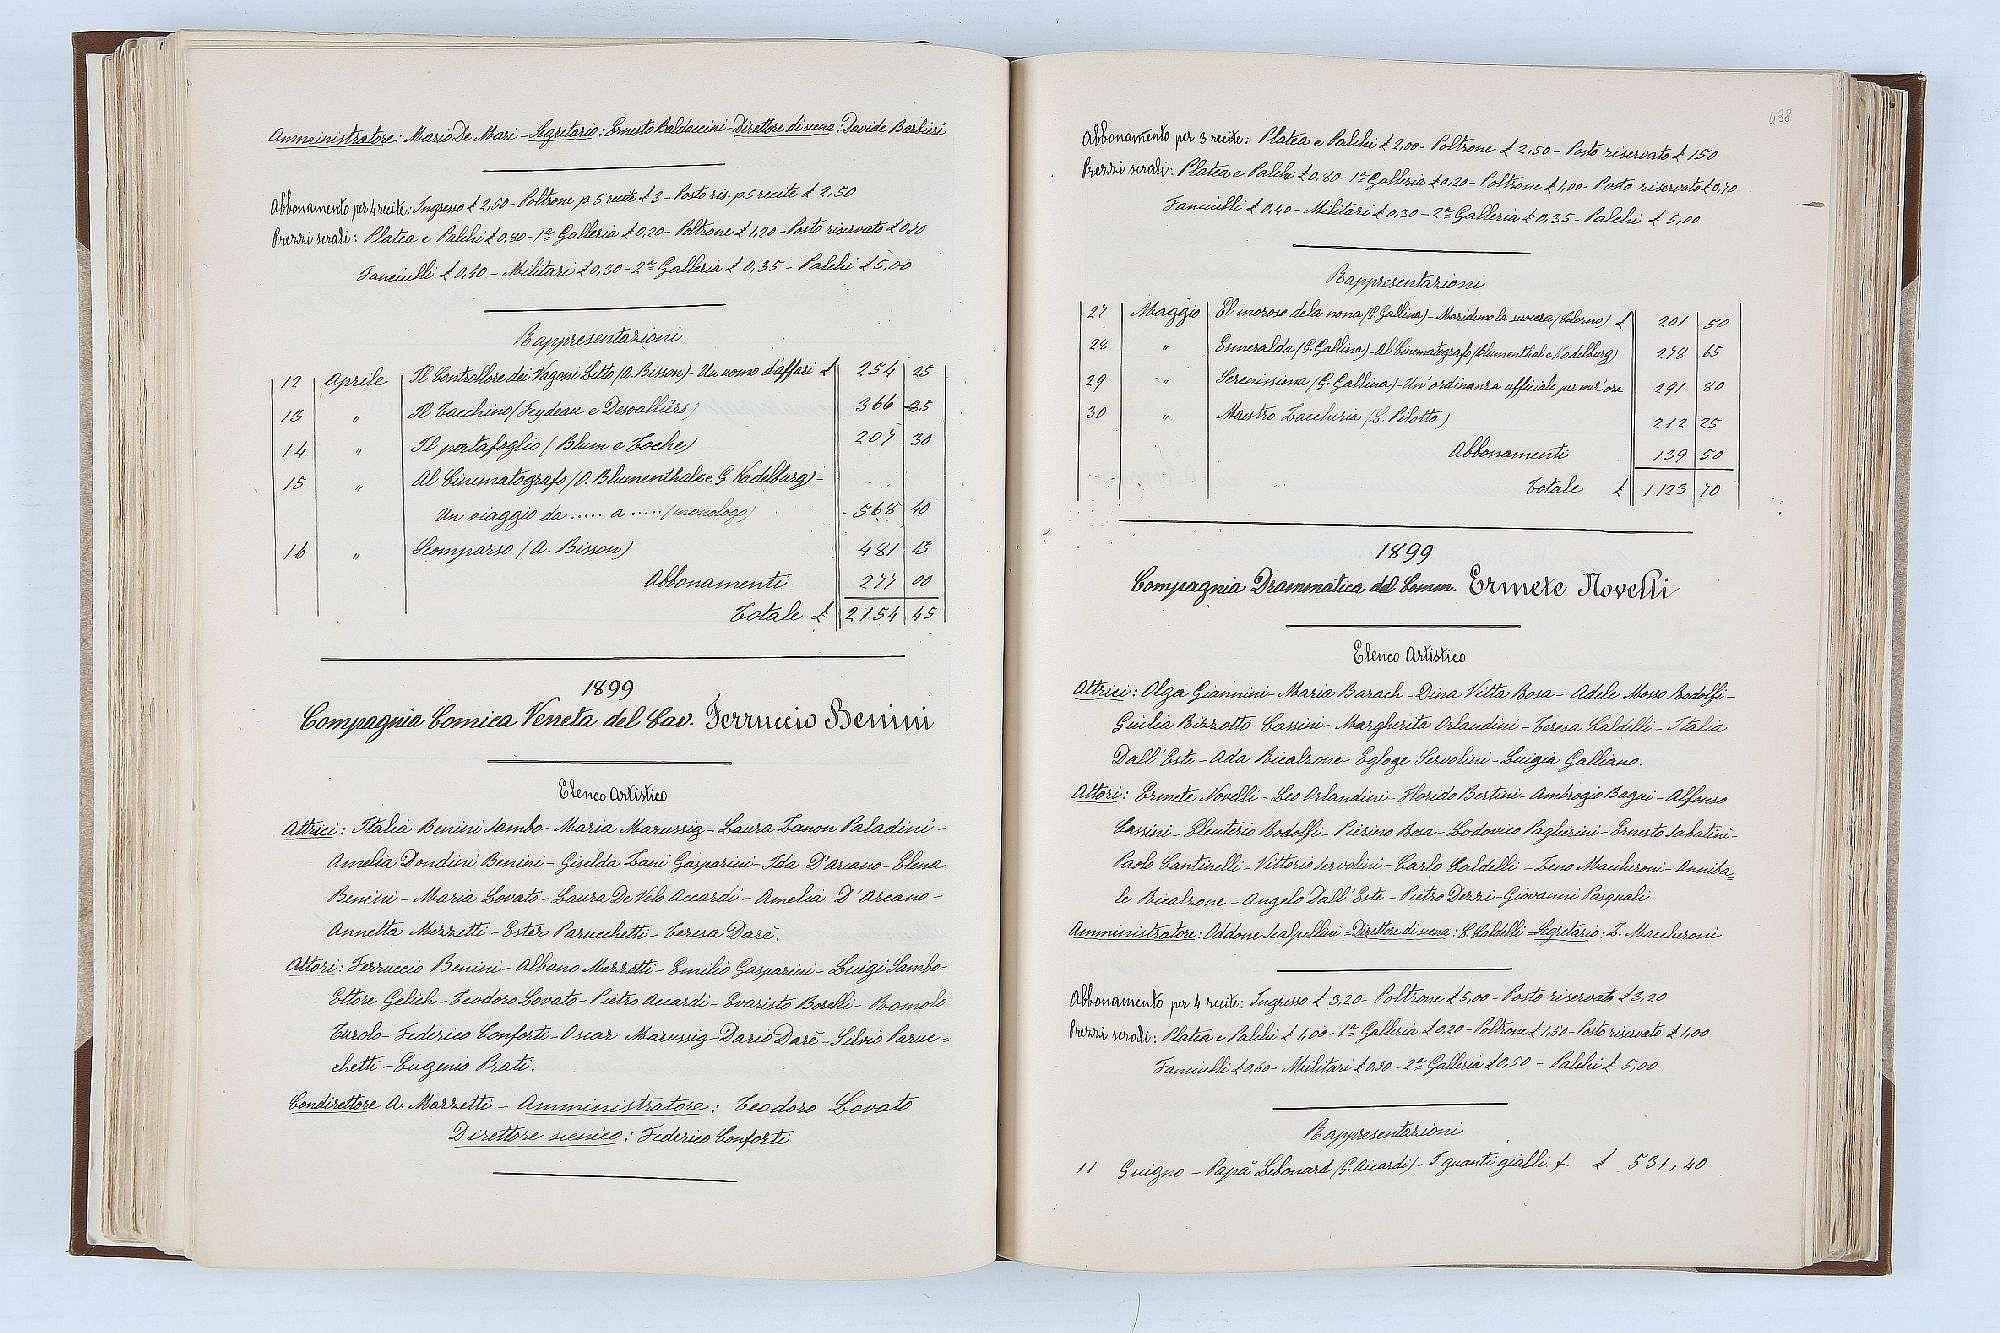 Amministratore: Mario De Mari - Segretario: Ernesto Baldaccini - Direttore di scena: Davide Barbieri
Abbonamento per 4 recite: Ingresso £ 2,50 - Poltrone p 5 recite £ 3 - Posto ris. p 5 recite £ 2,50
Prezzi serali: Platea e Palchi £ 0,80 - 1ª Galleria £ 0,20 - Poltrone £ 1,20 - Posto riservato £ 0,70
Fanciulli £ 0,40 - Militari £ 0,30 - 2ª Galleria £ 0,35 - Palchi £ 5,00
Rappresentazioni
12 Aprile Il Controllore dei Vagoni Letto (A. Bisson) - Un uomo d'affari £ 254 25
13 " Il Tacchino (Feydeau e Desvallièrs) 366 25
14 " Il portafoglio (Blum e Toche) 207 30
15 " Al Cinematografo (O. Blumenthal e G. Kadelburg) -
Un viaggio da ..... a ..... (monologo) 568 40
16 " Scomparso (A. Bisson) 481 25
Abbonamenti 277 00
Totale £ 2154 45
1899
Compagnia Comica Veneta del Cav. Ferruccio Benini
Elenco Artistico
Attrici: Italia Benini Sambo - Maria Marussig - Laura Zanon Paladini -
Amelia Dondini Benini - Giselda Zani Gasparini - Ida D'Arcano - Elena
Benini - Maria Lovato - Laura De Velo Accardi - Amelia D'Arcano -
Annetta Mezzetti - Ester Parucchetti - Teresa Darè.
Attori: Ferruccio Benini - Albano Mezzetti - Emilio Gasparini - Luigi Sambo -
Ettore Gelich - Teodoro Lovato - Pietro Accardi - Evaristo Borelli - Romolo
Turolo - Federico Conforti - Oscar Marussig - Dario Darè - Silvio Paruc=
chetti - Eugenio Prati.
Condirettore A. Mezzetti - Amministratore: Teodoro Lovato
Direttore scenico: Federico Conforti
438
Abbonamento per 3 recite: Platea e Palchi £ 2,00 - Poltrone £ 2,50 - Posto riservato £ 1 50
Prezzi serali: Platea e Palchi £ 0,80 1ª Galleria £ 0,20 - Poltrone £ 1,00 - Posto riservato £ 0,70
Fanciulli £ 0,40 - Militari £ 0,30 - 2ª Galleria £ 0,35 - Palchi £ 5,00
Rappresentazioni
27 Maggio El moroso dela nona (G. Gallina) - Maridemo la suocera (Salerno) £ 201 50
28 " Esmeralda (G. Gallina) - Al Cinematografo (Blumenthal e Kadelburg) 278 65
29 " Serenissima (G. Gallina) - Un'ordinanza ufficiale per mez'ora 291 80
30 " Maestro Zaccheria (L. Pilotto) 212 25
Abbonamenti 139 50
Totale £ 1123 70
1899
Compagnia Drammatica del Comm. Ermete Novelli
Elenco Artistico
Attrici: Olga Giannini - Maria Barach - Dina Vitta Rosa - Adele Mosso Rodolfi -
Giulia Rizzotto Cassini - Margherita Orlandini - Teresa Caldelli - Italia
Dall'Este - Ada Bicalzone Egloge Servolini - Luigia Galliano.
Attori: Ermete Novelli - Leo Orlandini - Florido Bertini - Ambrogio Bagni - Alfonso
Cassini - Eleuterio Rodolfi - Pierino Rosa - Lodovico Pagherini - Ernesto Sabatini -
Paolo Cantinelli - Vittorio Servolini - Carlo Caldelli - Zeno Maccheroni - Anniba=
le Bicalzone - Angelo Dall'Este - Pietro Dezzi - Giovanni Pasquali
Amministratore: Addone Scalpellini - Direttore di scena: C. Caldelli - Segretario: Z. Maccheroni
Abbonamento per 4 recite: Ingresso £ 3,20 - Poltrone £ 5,00 - Posto riservato £ 3,20
Prezzi serali: Platea e Palchi £ 1,00 - 1ª Galleria £ 0,20 - Poltrone £ 1,50 - Posto riservato £ 1,00
Fanciulli £ 0,60 - Militari £ 0,50 - 2ª Galleria £ 0,50 - Palchi £ 5,00
Rappresentazioni
11 Giugno - Papà Lebonard (G. Aicardi) - I guanti gialli f. £ 531,40